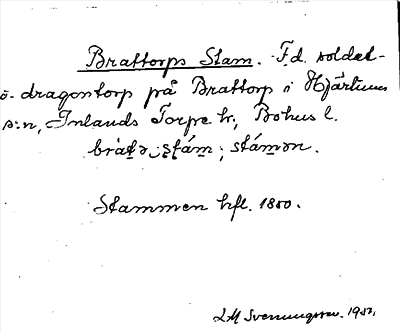 Brattorps Stam. F.d. soldat-
o. dragontorp på Brattorp i Hjärtums
s:n, Inlands Torpe h., Bohus l.
stám; stámən.
Stammen hfl. 1850.
LM Svenungsson. 1932.